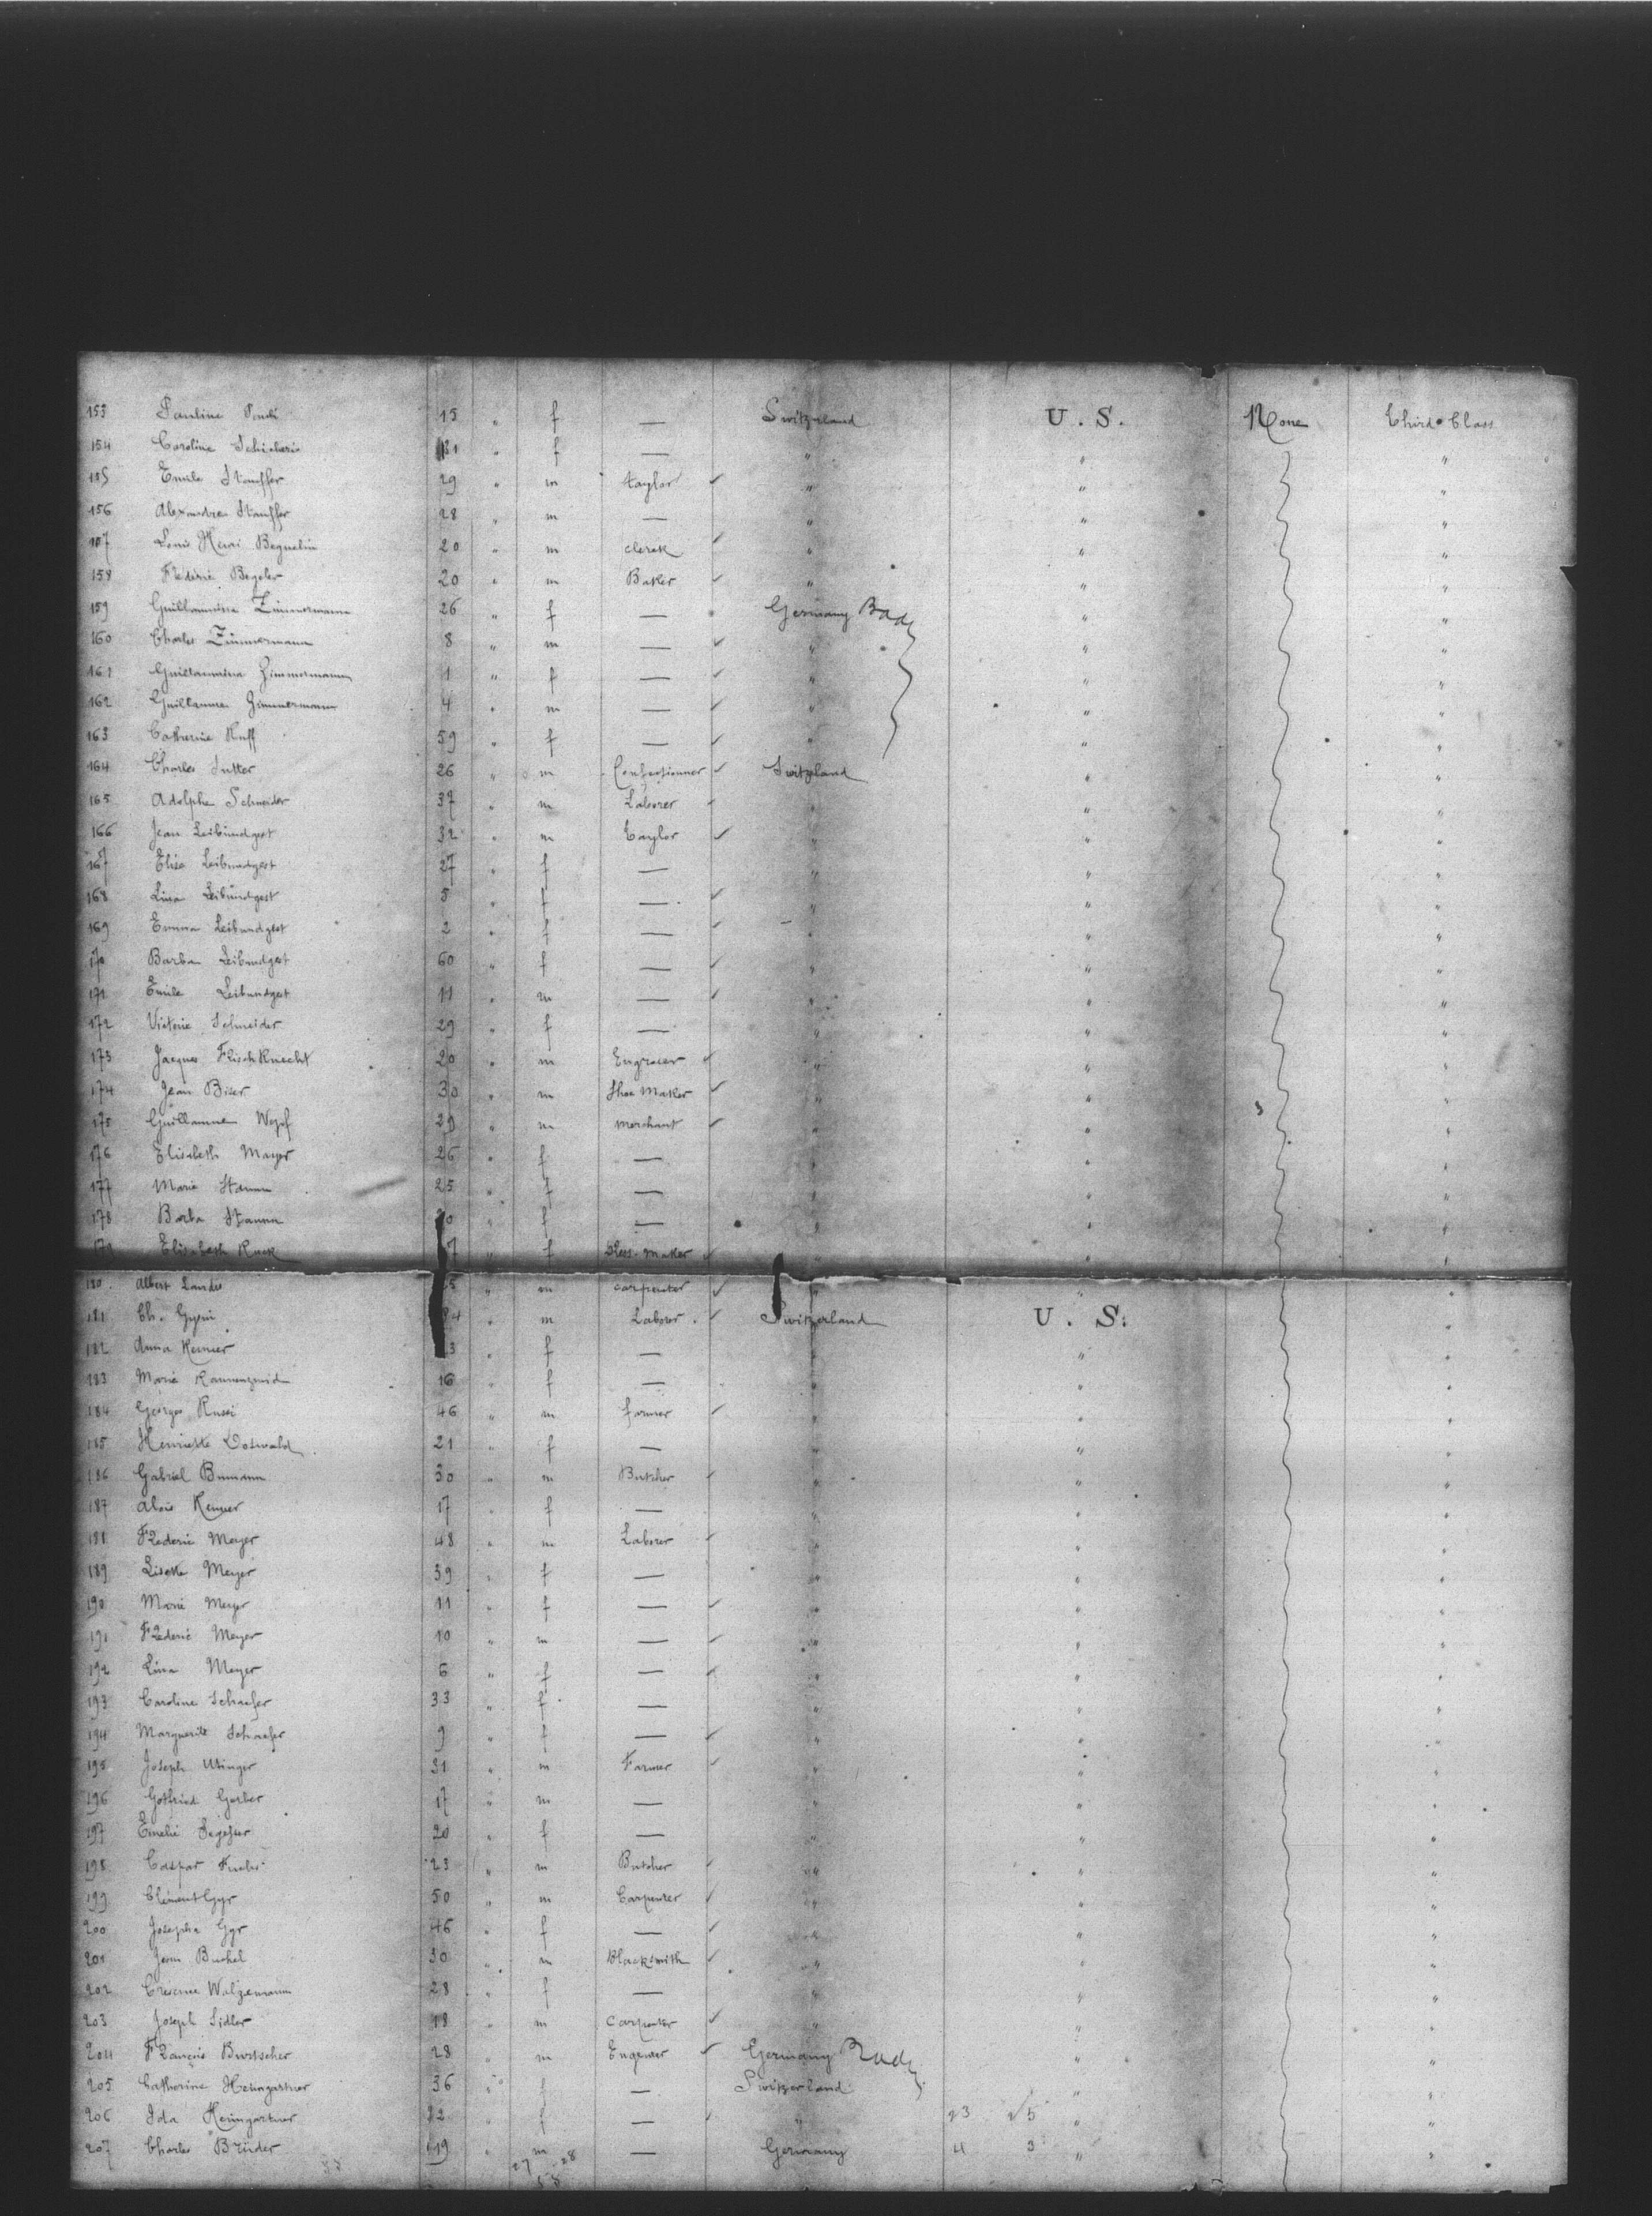 153 Pauline 15 " f — Switzerland U. S. None Third Class
154 Caroline 31 " f — " " "
155 Emile Stauffer 29 " m taylor ✓ " " "
156 Alexandre Stauffer 28 " m — " " "
157 Louis Henri Beguelin 20 " m clerck ✓ " " "
158 Frederic Begeler 20 " m Baker ✓ " " "
159 Guillaumine Zimmermann 26 " f — Germany Bad " "
160 Charles Zimmermann 8 " m — ✓ " " "
161 Guillaumina Zimmermann 1 " f — ✓ " " "
162 Guillaume Zimmermann 4 " m — ✓ " " "
163 Catherine Ruff 59 " f — ✓ " " "
164 Charles Sutter 26 " m Confectionner ✓ Switzland " "
165 Adolphe Schneider 37 " m Laborer ✓ " " "
166 Jean Leibundgest 32 " m Taylor ✓ " " "
167 Elise Leibundgest 27 " f — " " "
168 Lina Leibundgest 5 " f — ✓ " " "
169 Emma Leibundgest 2 " f — ✓ " " "
170 Barba Leibundgest 60 " f — ✓ " " "
171 Emile Leibundgest 11 " m — ✓ " " "
172 Victorie Schneider 29 " f — " " "
173 Jacques FrischKnecht 20 " m Engraver ✓ " " "
174 Jean Biser 30 " m Shoe Maker ✓ " " "
175 Guillaume Wepf 29 " m merchant ✓ " " "
176 Elisabeth Mayer 26 " f — " " "
177 Marie Stamm 25 " f — " " "
178 Barba Stamm " f — " " "
179 Elisabeth Ruck 7 " f Dress-maker ✓ " "
180 Albert Landis 5 " m carpenter ✓ " " "
181 Ch. Gysin 4 " m Laborer ✓ Switzerland U. S. "
182 Anna Renner 3 " f — " " "
183 Marie 16 " f — " " "
184 Georges Russi 46 " m farmer ✓ " " "
185 Henriette Doswald 21 " f — " " "
186 Gabriel Bumann 30 " m Butcher ✓ " " "
187 Alois Renner 17 " f — " " "
188 Frederic Meyer 48 " m Laborer ✓ " " "
189 Lisette Meyer 39 " f — " " "
190 Marie Meyer 11 " f — ✓ " " "
191 Frederic Meyer 10 " m — ✓ " " "
192 Lina Meyer 6 " f — ✓ " " "
193 Caroline Schaefer 33 " f — " " "
194 Marguerite Schaefer 9 " f — ✓ " " "
195 Joseph Utinger 31 " m Farmer ✓ " " "
196 Gotfried Gerber 17 " m — " " "
197 Emelie Segesser 20 " f — " " "
198 Caspar Fuchs 23 " m Butcher ✓ " " "
199 Clement Gyr 50 " m Carpenter ✓ " " "
200 Josepha Gyr 46 " f — ✓ " " "
201 Jean Buchel 30 " m Blacksmith ✓ " " "
202 Crescence Walzemann 28 " f — " " "
203 Joseph Sidler 18 " m carpenter ✓ " " "
204 François Burtscher 28 " m Engeneer ✓ Germany Bad " "
205 Catherine Heimgartner 36 " f — Switzerland " "
206 Ida Heimgartner 22 " f — ✓ " 23 25 " "
207 Charles Brüder 19 " m — Germany 4 3 " "
27 28